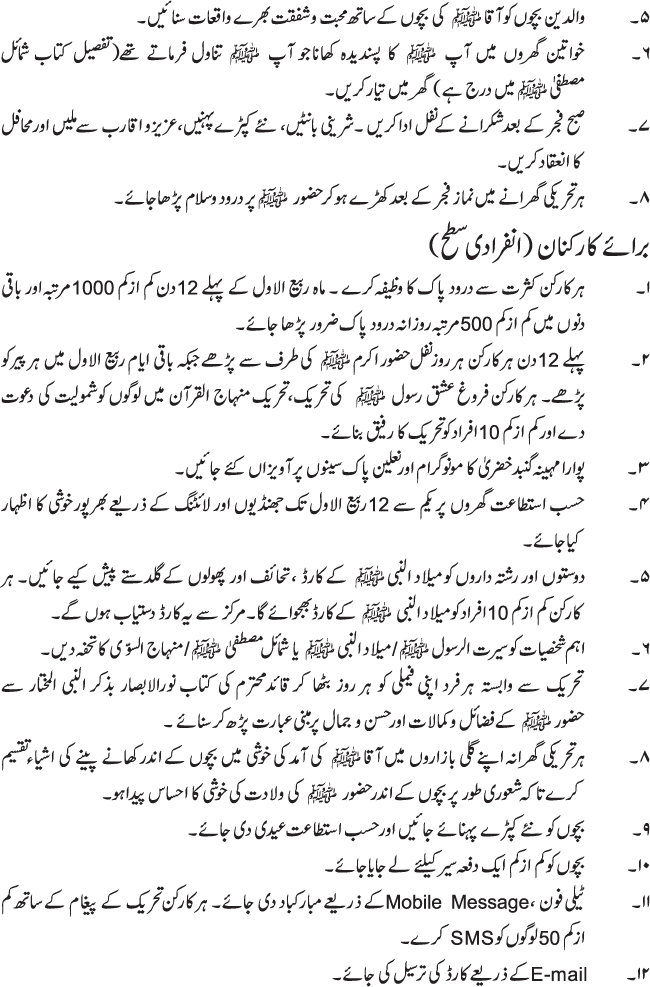 ۵۔ والدین بچوں کو آقا ﷺ کی بچوں کے ساتھ محبت و شفقت بھرے واقعات سنائیں۔
۶۔ خواتین گھروں میں آپ ﷺ کا پسندیدہ کھانا جو آپ ﷺ تناول فرماتے تھے (تفصیل کتاب شمائل
مصطفیٰ ﷺ میں درج ہے) گھر میں تیار کریں۔
۷۔ صبح فجر کے بعد شکرانے کے نفل ادا کریں ۔ شرینی بانٹیں، نئے کپڑے پہنیں، عزیز و اقارب سے ملیں اور محافل
کا انعقاد کریں۔
۸۔ ہر تحریکی گھرانے میں نماز فجر کے بعد کھڑے ہو کر حضور ﷺ پر درود و سلام پڑھا جائے۔
برائے کارکنان (انفرادی سطح)
۱۔ ہر کارکن کثرت سے درود پاک کا وظیفہ کرے ۔ ماہ ربیع الاول کے پہلے 12 دن کم از کم 1000 مرتبہ اور باقی
دنوں میں کم از کم 500 مرتبہ روزانہ درود پاک ضرور پڑھا جائے۔
۲۔ پہلے 12 دن ہر کارکن ہر روز نفل حضور اکرم ﷺ کی طرف سے پڑھے جبکہ باقی ایام ربیع الاول میں ہر پیر کو
پڑھے۔ ہر کارکن فروغ عشق رسول ﷺ کی تحریک، تحریک منہاج القرآن میں لوگوں کو شمولیت کی دعوت
دے اور کم از کم 10 افراد کو تحریک کا رفیق بنائے۔
۳۔ پوارا مہینہ گنبد خضریٰ کا مونوگرام اور نعلین پاک سینوں پر آویزاں کئے جائیں۔
۴۔ حسب استطاعت گھروں پر یکم سے 12 ربیع الاول تک جھنڈیوں اور لائٹنگ کے ذریعے بھرپور خوشی کا اظہار
کیا جائے۔
۵۔ دوستوں اور رشتہ داروں کو میلاد النبی ﷺ کے کارڈ ، تحائف اور پھولوں کے گلدستے پیش کیے جائیں۔ ہر
کارکن کم از کم 10 افراد کو میلاد النبی ﷺ کے کارڈ بھجوائے گا۔ مرکز سے یہ کارڈ دستیاب ہوں گے۔
۶۔ اہم شخصیات کو سیرت الرسول ﷺ/میلاد النبی ﷺ یا شمائل مصطفیٰ ﷺ/منہاج السوّی کا تحفہ دیں۔
۷۔ تحریک سے وابستہ ہر فرد اپنی فیملی کو ہر روز بٹھا کر قائد محترم کی کتاب نور الابصار بذکر النبی المختار سے
حضور ﷺ کے فضائل و کمالات اور حسن و جمال پر مبنی عبارت پڑھ کر سنائے ۔
۸۔ ہر تحریکی گھرانہ اپنے گلی بازاروں میں آقا ﷺ کی آمد کی خوشی میں بچوں کے اندر کھانے پینے کی اشیاء تقسیم
کرے تاکہ شعوری طور پر بچوں کے اندر حضور ﷺ کی ولادت کی خوشی کا احساس پیدا ہو۔
۹۔ بچوں کو نئے کپڑے پہنائے جائیں اور حسب استطاعت عیدی دی جائے۔
۱۰۔ بچوں کو کم از کم ایک دفعہ سیر کیلئے لے جایا جائے۔
۱۱۔ ٹیلی فون ، Mobile Message کے ذریعے مبارکباد دی جائے۔ ہر کارکن تحریک کے پیغام کے ساتھ کم
از کم 50 لوگوں کو SMS کرے۔
۱۲۔ E-mail کے ذریعے کارڈ کی ترسیل کی جائے۔